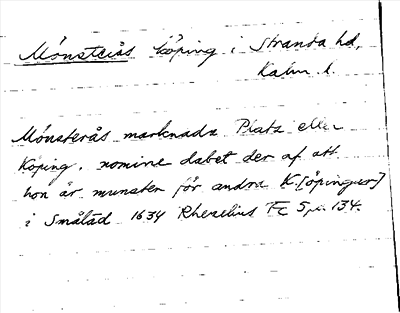 Mönsterås köping i Stranda hd,
Kalm. l.
Mönsterås marknads Platz eller
Köping. nomine dabet der af att
hon är munster för andra K[öpingar]
i Småläd 1634 Rhezelius Fc 5, 134.